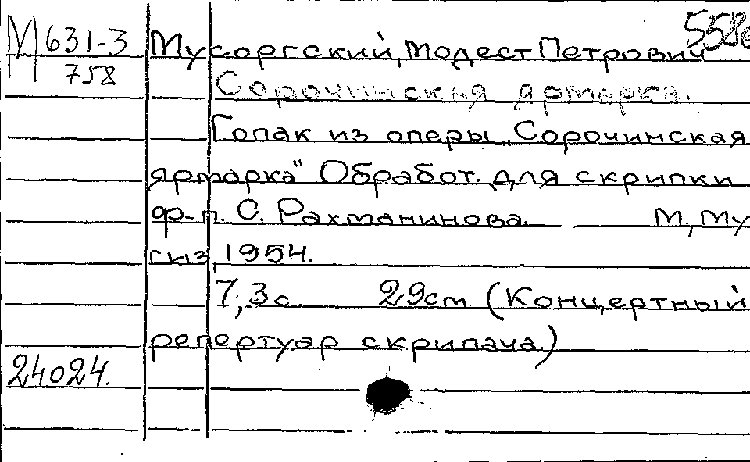 М 631-3 Мусоргский, Модест Петрович 558
758 Сорочинская ярмарка.
Гопак из оперы „Сорочинская
ярмарка" Обработ. для скрипки
ф-п. С. Рахманинова. М, Му
гиз, 1954.
7, 3 с. 29 cm (Концертный
репертуар скрипача)
24024.